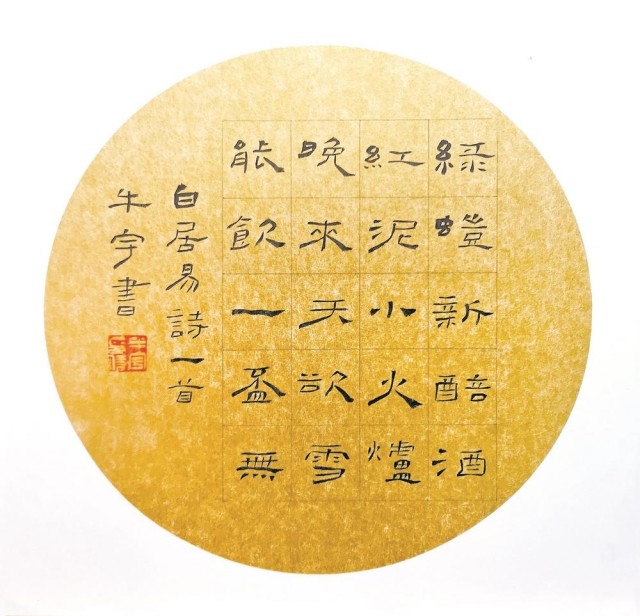 綠螘新醅酒
紅泥小火爐
晚來天欲雪
能飲一盃無
白居易詩一首
牛宇書